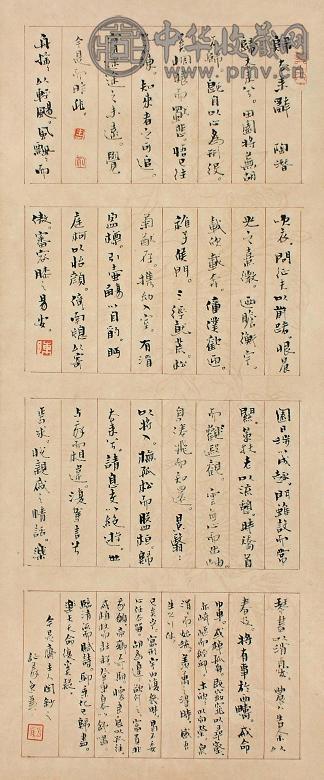 中华收藏网
www.pmv.cn
歸去來辭 陶潛
歸去來兮。田園將蕪胡
不歸。既自以心為形役。
奚惆悵而獨悲。悟已往
之不諫。知來者之可追。
實迷途其未遠。覺
今是而昨非。
舟搖搖以輕颺。風飄飄而
吹衣。問征夫以前路。恨晨
光之熹微。迺瞻衡宇。
載欣載奔。僮僕歡迎。
稚子候門。三徑就荒。松
菊猶存。攜幼入室。有酒
盈樽。引壺觴以自酌。眄
庭柯以怡顏。倚南牕以寄
傲。審容膝之易安。
園日涉以成趣。門雖設而常
關。策扶老以流憩。時矯首
而遐觀。雲無心而出岫
鳥倦飛而知還。景翳翳
以將入。撫孤松而盤桓。歸
去來兮。請息交以絕游。世
與我而相違。復駕言兮
焉求。悅親戚之情話。樂
琴書以消憂。農人告余以
春及。將有事於西疇。或命
巾車。或棹孤舟。既窈窕以尋壑
亦崎嶇而經邱。木欣欣以向榮。泉
涓涓而始流。善萬物之得時。感吾
生之行休
已矣乎。寓形宇內復幾時。曷不委
心任去留。胡為遑遑欲何之。富貴非
吾願。帝鄉不可期。懷良辰以孤往
或植杖而耘耔。登東皋以舒嘯。
臨清流而賦詩。聊乘化以歸盡。
樂夫天命復奚疑。
今是齋主人